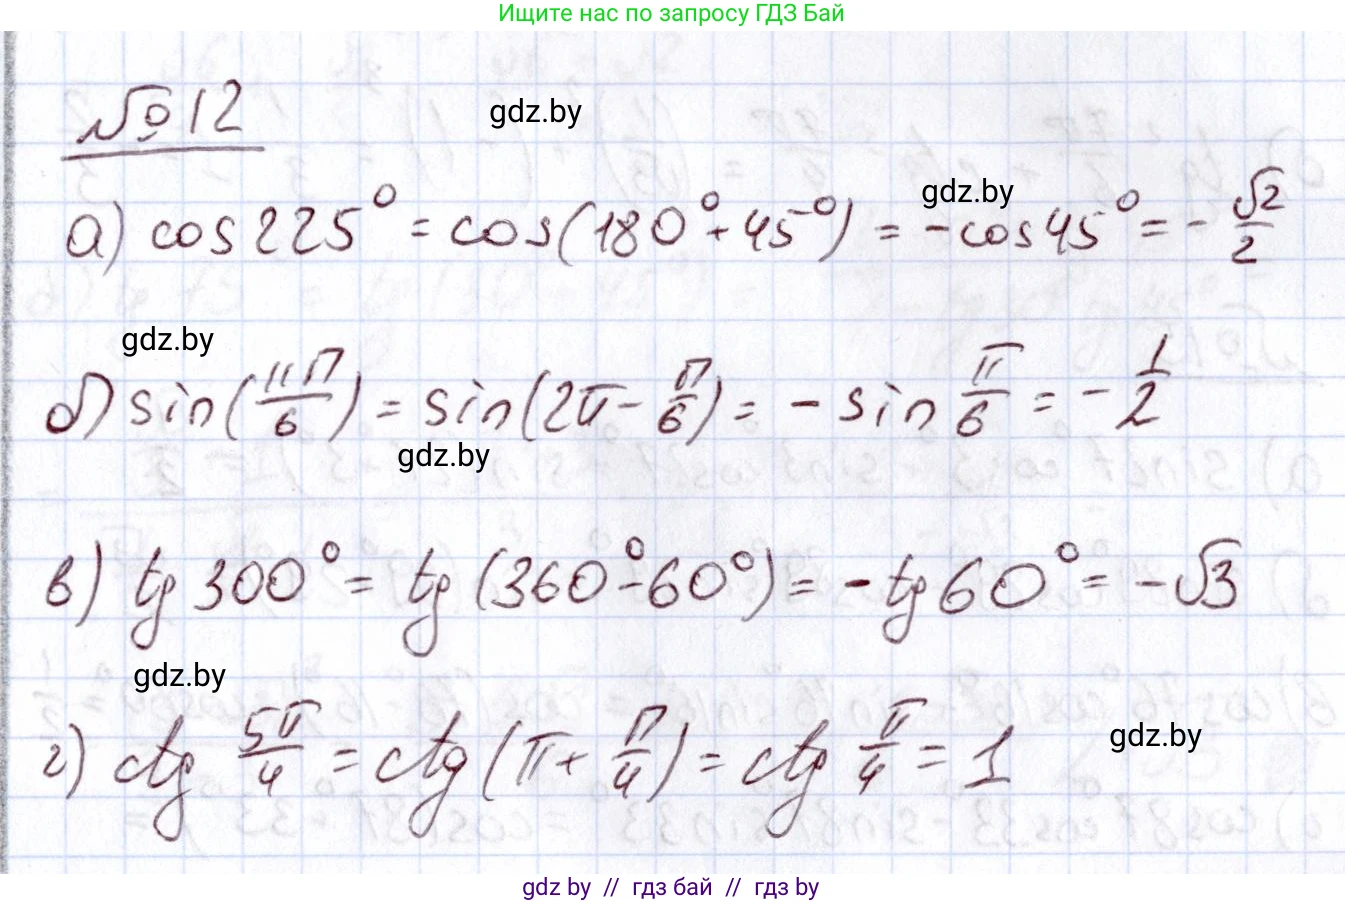 Ищите нас по запросу ГДЗ Бай
№12
gdz.by
gdz.by
а) cos 225° = cos(180° + 45°) = -cos 45° = - √2/2
gdz.by
б) sin(11π/6) = sin(2π - π/6) = - sin π/6 = - 1/2
gdz.by
в) tg 300° = tg (360° - 60°) = - tg 60° = - √3
gdz.by
г) ctg 5π/4 = ctg (π + π/4) = ctg π/4 = 1
gdz.by
gdz by // гдз бай // гдз by